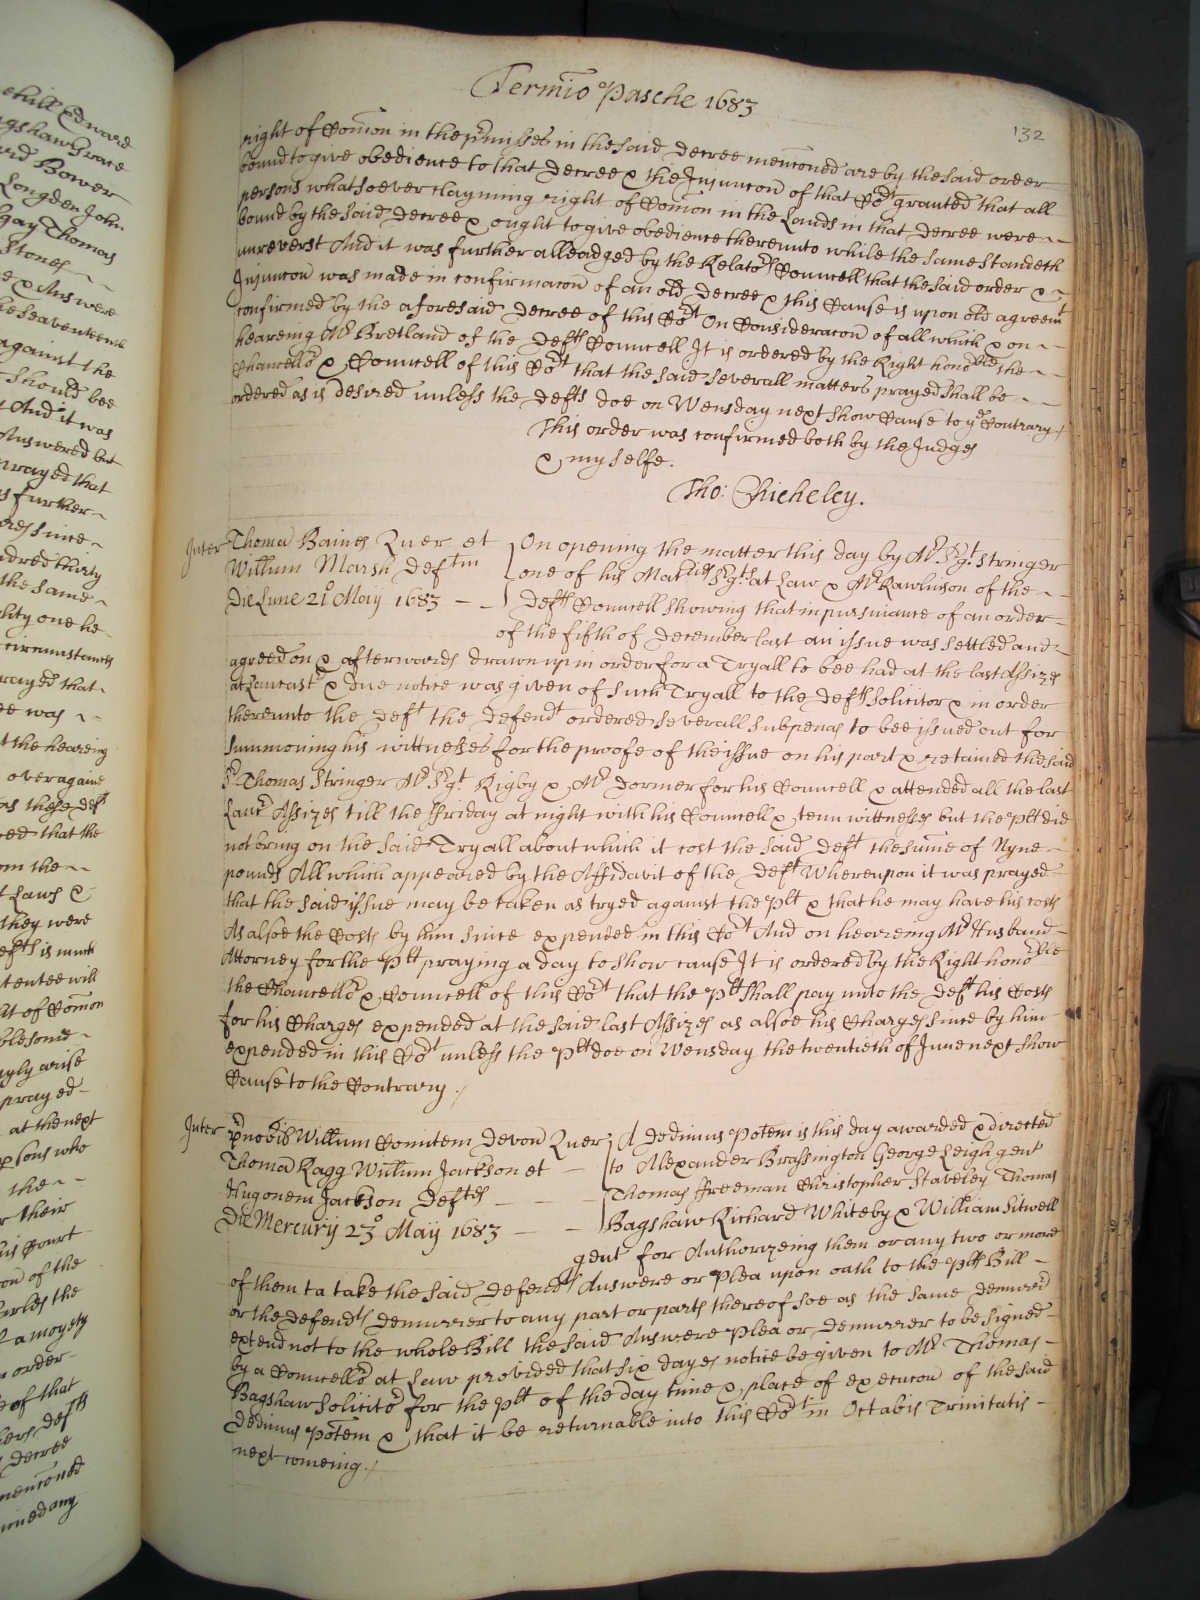 Termio Pasche 1683
132
right of Com̄on in the p̄misses in the said decree menc̄oned are by the said order
bound to give obedience to that decree & the Injuncc̄on of that Cot granted that all
persons whatsoever clayming right of Com̄on in the Lands in that decree were
bound by the said decree & ought to give obedience thereunto while the same standeth
unreverst And it was further alleadged by the Relators Councell that the said order &
Injuncc̄on was made in confirmac̄on of an old decree & this Cause is upon old agreemt
confirmed by the aforesaid decree of this Cot On Considerac̄on of all which & on
heareing Mr Bretland of the defts Councell It is ordered by the Right honoble the
Chancellor & Councell of this Cot that the said severall matters prayed shall be
ordered as is desired unless the defts doe on Wensday next show Cause to ye Contrary /
This order was confirmed both by the Judges
& my selfe.
Tho: Chicheley.
Inter Thomā Baines Quer et
Willum Marsh Deftm
Die Lune 21o Maij 1683
On opening the matter this day by Mr Sgt. Stringer
one of his Maties Sgts. at Law & Mr Rawlinson of the
defts Councell showing that in pursuance of an order
of the fifth of December last an issue was settled and
agreed on & afterwards drawn up in order for a Tryall to bee had at the last Assizes
at Lancastr & due notice was given of such Tryall to the defts Solicitor & in order
thereunto the deft the defendt ordered severall subpenas to bee issued out for
summoning his wittnesses for the proofe of the issue on his part & retained the said
Sr Thomas Stringer Mr Sgt. Rigby & Mr Dormer for his Councell & attended all the last
Lancr Assizes till the ffriday at night with his Councell & tenn wittnesses but the plt did
not bring on the said Tryall about which it cost the said deft the sum̄e of Nyne
pounds All which appeared by the Affidavit of the deft Whereupon it was prayed
that the said issue may be taken as tryed against the plt & that he may have his costs
As alsoe the Costs by him since expended in this Cot And on heareing Mr Husband
Attorney for the Plt praying a day to show cause It is ordered by the Right honoble
the Chancellor & Councell of this Cot that the Plt shall pay unto the deft his Costs
for his Charges expended at the said last Assizes as alsoe his Charges since by him
expended in this Cot unless the Plt doe on Wensday the twentieth of June next show
Cause to the Contrary /
Inter p̄nobil Willum Comitem Devon Quer
Thomā Ragg Willum Jackson et
Hugonem Jackson deftes
Die Mercurij 23o Maij 1683
A dedimus Potem is this day awarded & directed
to Alexander Brassington George Leigh gent
Thomas ffreeman Christopher Staveley Thomas
Bagshaw Richard Whiteby & William Sitwell
gent for Authorizeing them or any two or more
of them ta take the said defendts Answere or plea upon oath to the plts Bill
or the defendts demurrer to any part or parts thereof soe as the same demurrr
extend not to the whole Bill the said Answere plea or demurrer to be signed
by a Councellr at Law provided that six dayes notice be given to Mr Thomas
Bagshaw Solicitr for the plt of the day time & place of execuc̄on of the said
dedimus Potem & that it be returnable into this Cot in Octabis Trinitatis
next comeing /